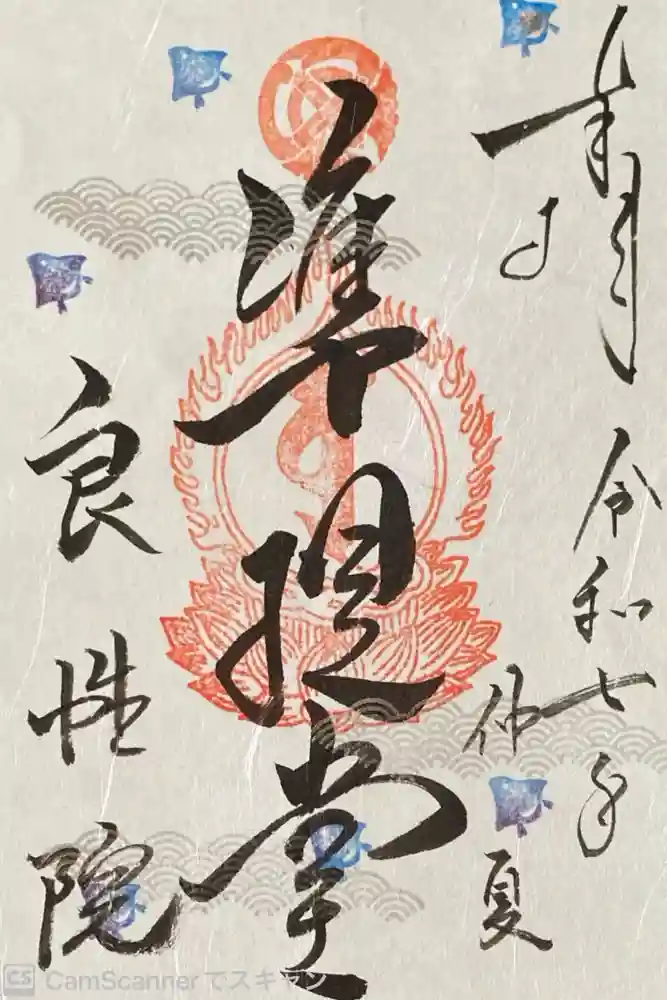 奉拝 令和七年
仲夏
準提堂
良性院
CS CamScannerでスキャン